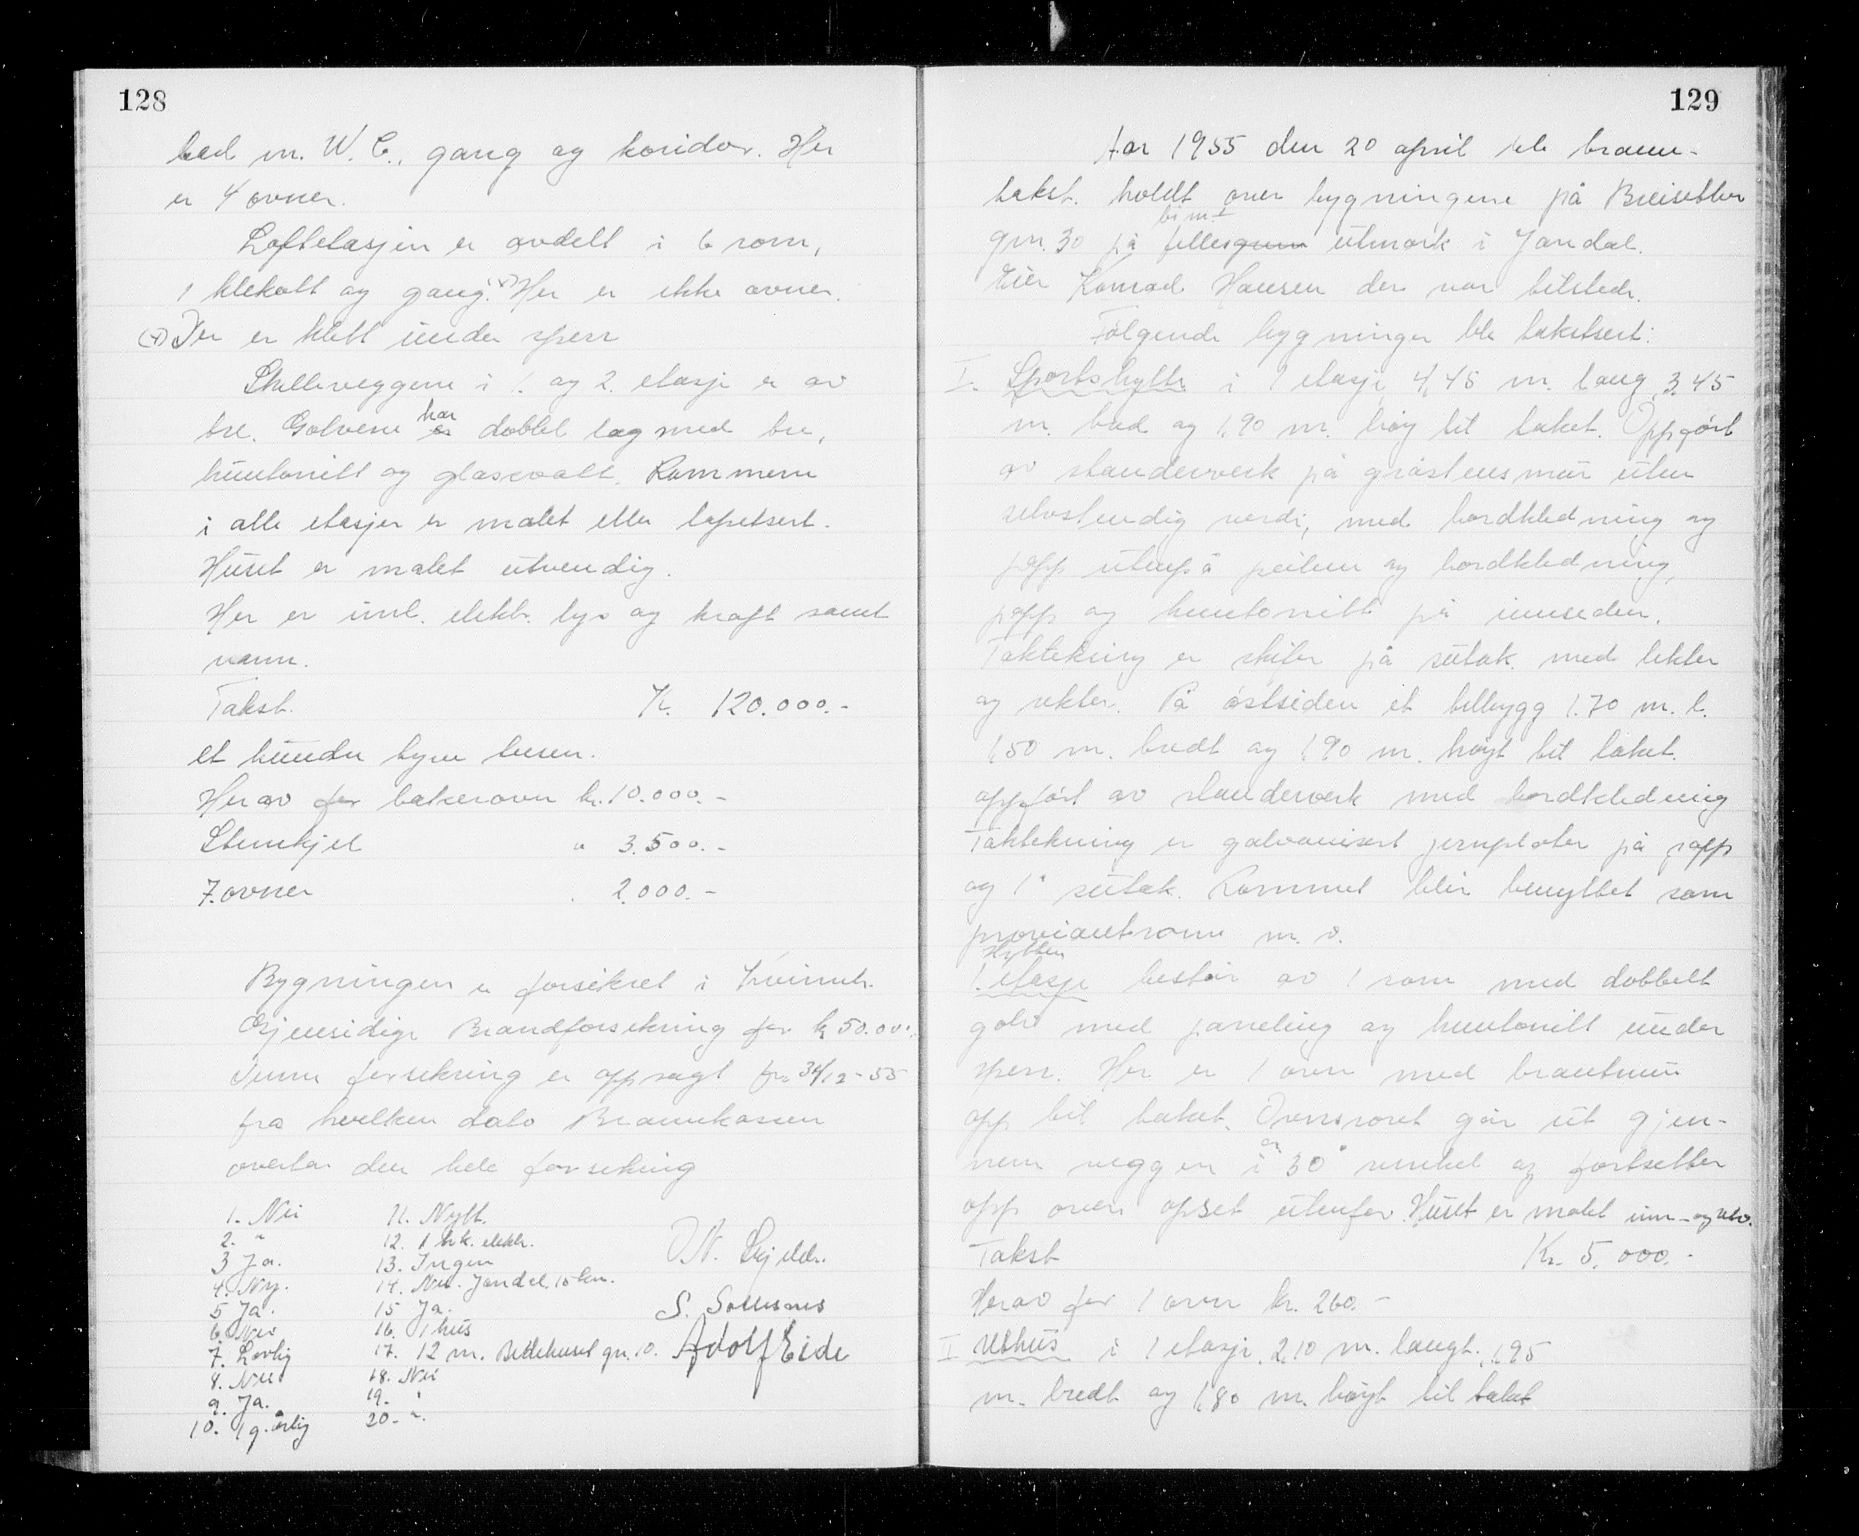 128
bad m. W. C., gang og koridor. Her
er 4 ovner.
Loftetasjen er avdelt i 6 rom,
1 klekott og gang. x) Her er ikke ovner.
(x) Der er klett under sperr
Skilleveggene i 1. og 2. etasje er av
tre. Golvene har dobbel lag med tre,
huntonitt og glassvatt. Rommene
i alle etasjer er malet eller tapetsert.
Huset er malet utvendig.
Her er innl. elektr. lys og kraft samt
vann.
Takst. Kr. 120.000.-
et hundre tyve tusen.
Herav for bakerovn kr. 10.000.-
Stemkjel " 3.500.-
7 ovner " 2.000.-
Bygningen er forsikret i Kvinnh.
Gjensidige Brandforsikring for kr 50.00.
Denne forsikring er oppsagt fra 31/12-55
fra hvilken dato Brannkassen
overtar den hele forsikring
1. Nei 11. Nytt.
2. " 12. 1 hk. elektr.
3 Ja. 13. Ingen
4. Ny. 14. Nei. Jondal 10 km.
5 Ja. 15 Ja.
6. Nei 16. 1 hus
7. Lovlig 17. 12 m. Bedehuset gn. 10.
8. Nei 18. Nei
9. Ja. 19. "
10. 1 g. årlig 20. "
S. Solesnes
Adolf Eide
129
Aar 1955 den 20 april ble brann-
takst. holdt over bygningene på Breisetter
gnr. 30 på felles utmark i Jondal.
Eier Konrad Hansen der var tilstede.
Følgende bygninger ble takstsert:
I. Sportshytte i 1 etasje 4,45 m. lang, 3,45
m. bred og 1,90 m. høy til taket. Oppført
av standerverk på gråstensmur uten
selvstendig verdi, med bordkledning og
papp utenpå peilene og bordkledning,
papp og huntonitt på innsiden.
Taktekning er skifer på sutak med lekter
og rekter. På østsiden et tilbygg 1.70 m. l.
1,50 m. bredt og 1,90 m. høyt til taket.
oppført av standerverk med bordkledning
Taktekning er galvanisert jernplater på papp
og 1" sutak. Rommet blir benyttet som
proviantrom m. v.
Hytten
1. etasje består av 1 rom med dobbelt
golv med paneling og huntonitt under
sperr. Her er 1 ovn med brantmur
opp til taket. Ovnsroret går ut gjen-
nem veggen i en 30° vinkel og fortsetter
opp over opset utenfor. Huset er malet inn- og utv.
Takst Kr. 5.000.-
Herav for 1 ovn kr. 260.-
I Uthus i 1 etasje 2,10 m. langt. 1,95
m. bredt og 1,80 m. høyt til taket